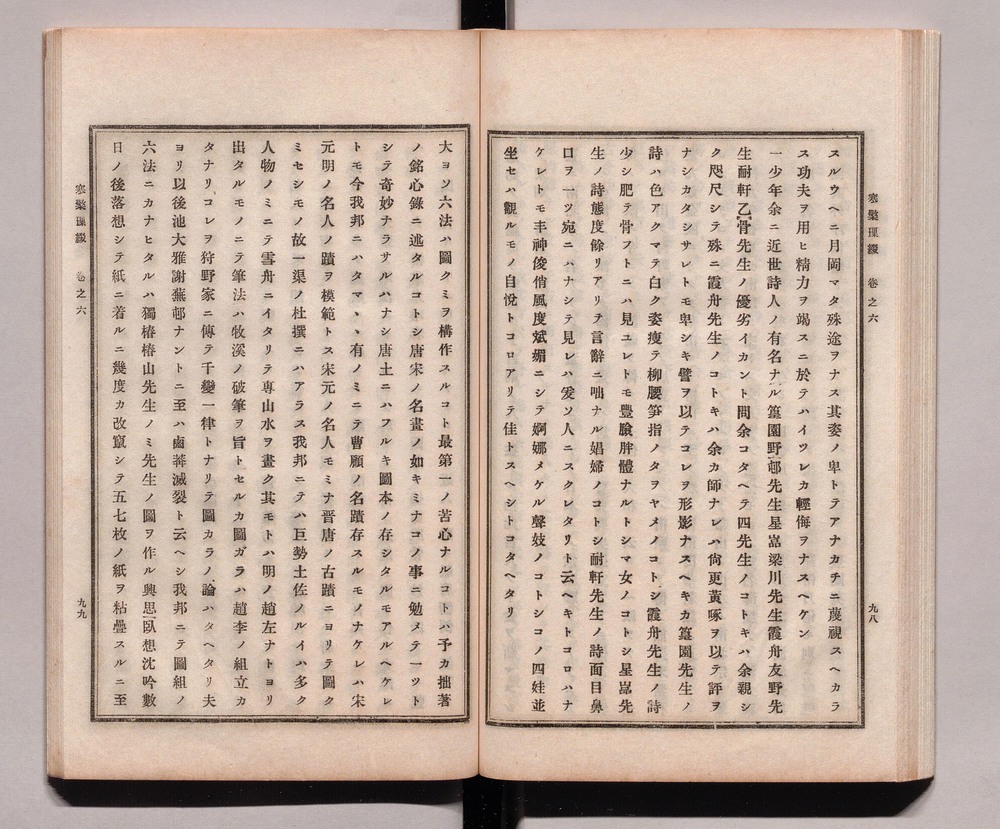 寒檠璅綴　卷之六
九八
スルウヘニ月岡マタ殊途ヲナス其姿ノ卑トテアナカチニ蔑視スヘカラ
ス功夫ヲ用ヒ精力ヲ竭スニ於テハイツレカ輕侮ヲナスヘケン
一少年余ニ近世詩人ノ有名ナル篁園野邨先生星嵓梁川先生霞舟友野先
生耐軒乙骨先生ノ優劣イカント問余コタヘテ四先生ノコトキハ余親シ
ク咫尺シテ殊ニ霞舟先生ノコトキハ余カ師ナレハ尙更黃啄ヲ以テ評ヲ
ナシカタシサレトモ卑シキ譬ヲ以テコレヲ形影ナスヘキカ篁園先生ノ
詩ハ色アクマテ白ク姿瘦テ柳腰笋指ノタヲヤメノコトシ霞舟先生ノ詩
少シ肥テ骨フトニハ見ユレトモ豐臉胖體ナルトシマ女ノコトシ星嵓先
生ノ詩態度餘リアリテ言辭ニ咄ナル娼婦ノコトシ耐軒先生ノ詩面目鼻
口ヲ一ツ宛ニハナシテ見レハ爰ソ人ニスクレタリト云ヘキトコロハナ
ケレトモ丰神俊俏風度斌媚ニシテ婀娜メケル聲妓ノコトシコノ四娃並
坐セハ觀ルモノ自悅トコロアリテ佳トスヘシトコタヘタリ
大ヨソ六法ハ圖クミヲ構作スルコト最第一ノ苦心ナルコトハ予カ拙著
ノ銘心錄ニ述タルコトシ唐宋ノ名畫ノ如キミナコノ事ニ勉メテ一ツト
シテ奇妙ナラサルハナシ唐土ニハフルキ圖本ノ存シタルモアルヘケレ
トモ今我邦ニハタマヽヽ有ノミニテ曹顧ノ名蹟存スルモノナケレハ宋
元明ノ名人ノ蹟ヲ模範トス宋元ノ名人モミナ晋唐ノ古蹟ニヨリテ圖ク
ミセシモノ故一渠ノ杜撰ニハアラス我邦ニテハ巨勢土佐ノルイハ多ク
人物ノミニテ雪舟ニイタリテ專山水ヲ畫ク其モトハ明ノ趙左ナトヨリ
出タルモノニテ筆法ハ牧溪ノ破筆ヲ旨トセルカ圖ガラハ趙李ノ組立カ
タナリコレヲ狩野家ニ傳テ千變一律トナリテ圖カラノ論ハタヘタリ夫
ヨリ以後池大雅謝蕪邨ナントニ至ハ鹵莾滅裂ト云ヘシ我邦ニテ圖組ノ
六法ニカナヒタルハ獨椿椿山先生ノミ先生ノ圖ヲ作ル興思臥想沈吟數
日ノ後落想シテ紙ニ着ルニ幾度カ改竄シテ五七枚ノ紙ヲ粘疊スルニ至
寒檠璅綴　卷之六
九九